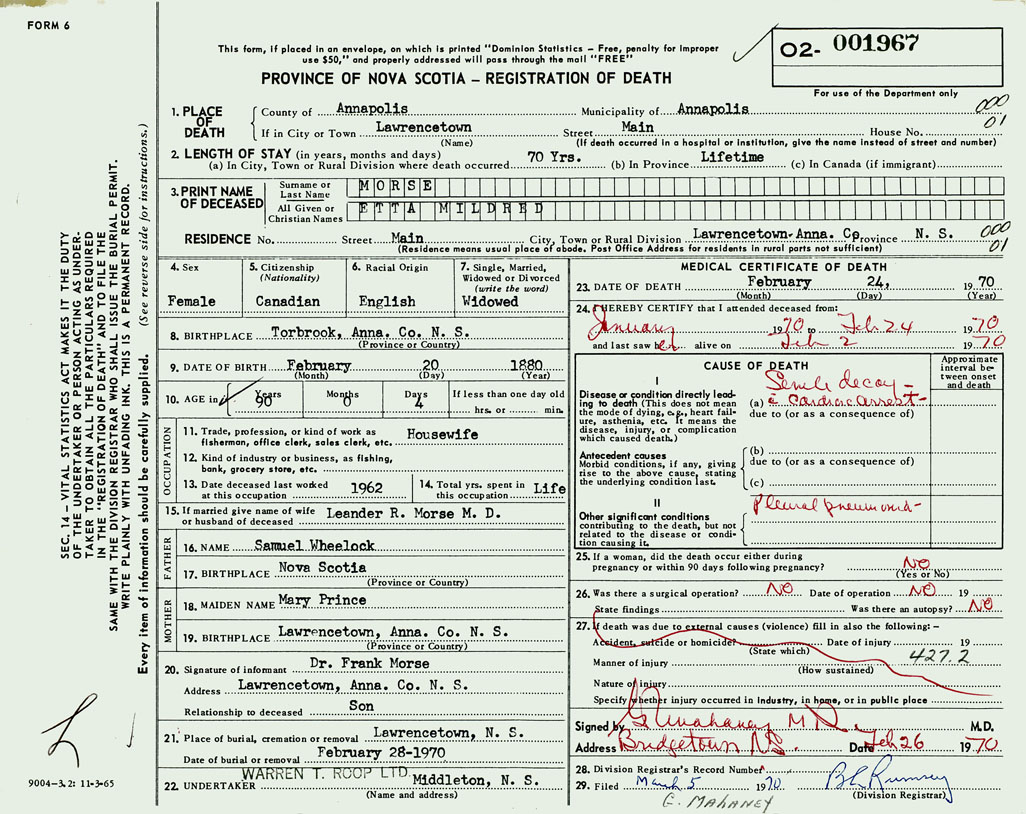 FORM 6
This form, if placed in an envelope, on which is printed "Dominion Statistics – Free, penalty for improper
use $50," and properly addressed will pass through the mail "FREE"
02- 001967
PROVINCE OF NOVA SCOTIA – REGISTRATION OF DEATH
For use of the Department only
1. PLACE OF DEATH
County of Annapolis Municipality of Annapolis 000
If in City or Town Lawrencetown Street Main House No. 01
(Name) (If death occurred in a hospital or institution, give the name instead of street and number)
2. LENGTH OF STAY (in years, months and days)
(a) In City, Town or Rural Division where death occurred 70 Yrs. (b) In Province Lifetime (c) In Canada (if immigrant)
3. PRINT NAME OF DECEASED
Surname or Last Name MORSE
All Given or Christian Names ETTA MILDRED
RESIDENCE No. Street Main City, Town or Rural Division Lawrencetown-Anna. Co Province N. S. 000
(Residence means usual place of abode. Post Office Address for residents in rural parts not sufficient) 01
4. Sex
Female
5. Citizenship
(Nationality)
Canadian
6. Racial Origin
English
7. Single, Married,
Widowed or Divorced
(write the word)
Widowed
8. BIRTHPLACE Torbrook, Anna. Co. N. S.
(Province or Country)
9. DATE OF BIRTH February 20 1880
(Month) (Day) (Year)
10. AGE in Years Months Days If less than one day old
90 4 hrs. or min.
OCCUPATION
11. Trade, profession, or kind of work as Housewife
fisherman, office clerk, sales clerk, etc.
12. Kind of industry or business, as fishing,
bank, grocery store, etc.
13. Date deceased last worked
at this occupation 1962
14. Total yrs. spent in
this occupation Life
15. If married give name of wife
or husband of deceased Leander R. Morse M. D.
FATHER
16. NAME Samuel Wheelock
17. BIRTHPLACE Nova Scotia
(Province or Country)
MOTHER
18. MAIDEN NAME Mary Prince
19. BIRTHPLACE Lawrencetown, Anna. Co. N. S.
(Province or Country)
20. Signature of informant Dr. Frank Morse
Address Lawrencetown, Anna. Co. N. S.
Relationship to deceased Son
21. Place of burial, cremation or removal Lawrencetown, N. S.
Date of burial or removal February 28-1970
WARREN T. ROOP LTD.
22. UNDERTAKER Middleton, N. S.
(Name and address)
MEDICAL CERTIFICATE OF DEATH
23. DATE OF DEATH February 24, 1970
(Month) (Day) (Year)
24. I HEREBY CERTIFY that I attended deceased from:
January 1970 to Feb 24 1970
and last saw her alive on Feb 2 1970
CAUSE OF DEATH
Approximate
interval be-
tween onset
and death
I
Disease or condition directly lead-
ing to death (This does not mean
the mode of dying, e.g., heart fail-
ure, asthenia, etc. It means the
disease, injury, or complication
which caused death.)
Senile decay -
(a) c̄ cardiac arrest -
due to (or as a consequence of)
Antecedent causes
Morbid conditions, if any, giving
rise to the above cause, stating
the underlying condition last.
(b)
due to (or as a consequence of)
(c)
II
Other significant conditions
contributing to the death, but not
related to the disease or condi-
tion causing it.
Pleural pneumonia-
25. If a woman, did the death occur either during
pregnancy or within 90 days following pregnancy? NO
(Yes or No)
26. Was there a surgical operation? NO Date of operation NO 19
State findings Was there an autopsy? NO
27. If death was due to external causes (violence) fill in also the following: –
Accident, suicide or homicide? Date of injury 19
(State which) 427.2
Manner of injury
(How sustained)
Nature of injury
Specify whether injury occurred in industry, in home, or in public place
Signed by G Mahaney M D. M.D.
Address Bridgetown NS. Date Feb 26 1970
28. Division Registrar's Record Number
29. Filed March 5 1970
(Division Registrar)
E. MAHANEY
SEC. 14 – VITAL STATISTICS ACT MAKES IT THE DUTY
OF THE UNDERTAKER OR PERSON ACTING AS UNDER-
TAKER TO OBTAIN ALL THE PARTICULARS REQUIRED
IN THE "REGISTRATION OF DEATH" AND TO FILE THE
SAME WITH THE DIVISION REGISTRAR WHO SHALL ISSUE THE BURIAL PERMIT.
WRITE PLAINLY WITH UNFADING INK. THIS IS A PERMANENT RECORD.
Every item of information should be carefully supplied. (See reverse side for instructions.)
9004-3.2: 11-3-65